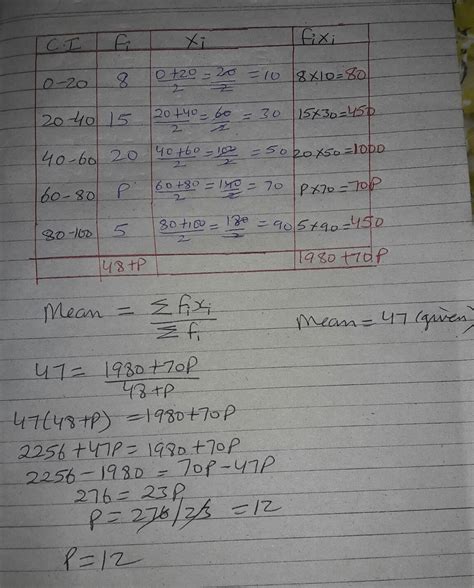 C.I fi xi fixi
0-20 8 0+20/2 = 20/2 = 10 8×10=80
20-40 15 20+40/2 = 60/2 = 30 15×30=450
40-60 20 40+60/2 = 100/2 = 50 20×50=1000
60-80 P 60+80/2 = 140/2 = 70 P×70=70P
80-100 5 80+100/2 = 180/2 = 90 5×90=450
48+P 1980+70P
Mean = Σfixi/Σfi Mean=47 (given)
47 = 1980+70P/48+P
47(48+P) = 1980+70P
2256+47P = 1980+70P
2256-1980 = 70P-47P
276 = 23P
P = 276/23 = 12
P=12